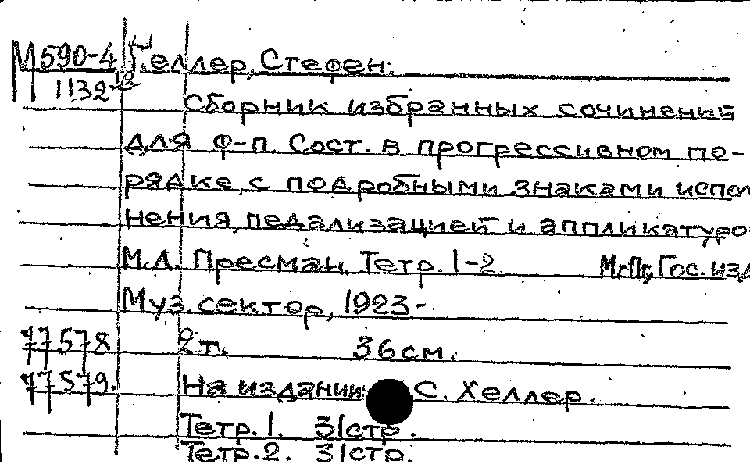 М590-4 Геллер, Стефен.
1132
Сборник избранных сочинений
для ф-п. Сост. в прогрессивном по-
рядке, с подробными знаками испол
нения, педализацией и аппликатуро
М.Л. Пресман. Тетр. 1-2 М.-П., Гос. изд
Муз. сектор, 1923-
77578 2 т. 36 см.
77579. На издании С. Хеллер.
Тетр. 1. 31 стр.
Тетр. 2. 31 стр.